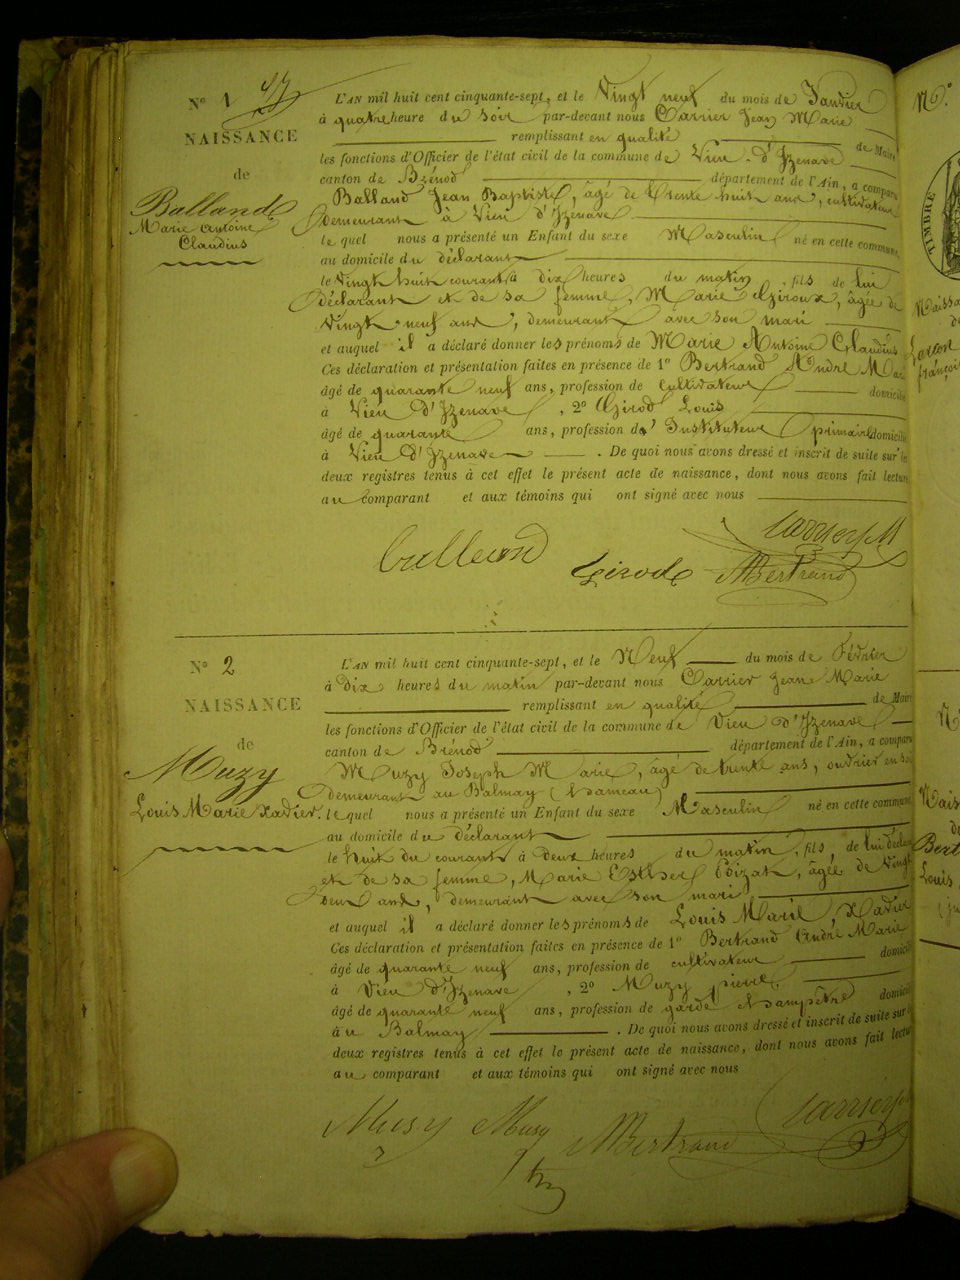 N° 1
NAISSANCE
de
Balland
Marie Antoine
Claudius
L'AN mil huit cent cinquante-sept, et le Vingt neuf du mois de Janvier
à quatre heure du soir par-devant nous Carrier Jean Marie
remplissant en qualité de Maire
les fonctions d'Officier de l'état civil de la commune de Vieu-d'Izenave
canton de Brénod département de l'Ain, a comparu
Balland Jean Baptiste, âgé de trente huit ans, cultivateur
demeurant à Vieu d'Izenave
le quel nous a présenté un Enfant du sexe Masculin né en cette commune
au domicile du déclarant
le vingt huit courant à dix heures du matin, fils de lui
déclarant et de sa femme, Marie Giroux, âgée de
vingt neuf ans, demeurant avec son mari
et auquel il a déclaré donner les prénoms de Marie Antoine Claudius
Ces déclaration et présentation faites en présence de 1° Bertrand André Marie
âgé de quarante neuf ans, profession de cultivateur domicilié
à Vieu d'Izenave, 2° Girod Louis
âgé de quarante ans, profession d' Instituteur primaire domicilié
à Vieu d'Izenave. De quoi nous avons dressé et inscrit de suite sur les
deux registres tenus à cet effet le présent acte de naissance, dont nous avons fait lecture
au comparant et aux témoins qui ont signé avec nous
balland Girod Bertrand Carrier JM
N° 2
NAISSANCE
de
Muzy
Louis Marie Xavier.
L'AN mil huit cent cinquante-sept, et le Neuf du mois de Février
à Dix heures du matin par-devant nous Carrier Jean Marie
remplissant en qualité de Maire
les fonctions d'Officier de l'état civil de la commune de Vieu d'Izenave
canton de Brénod département de l'Ain, a comparu
Muzy Joseph Marie, âgé de trente ans, ouvrier en
demeurant au Balmay (hameau)
le quel nous a présenté un Enfant du sexe Masculin né en cette commune
au domicile du déclarant
le huit du courant à deux heures du matin, fils, de lui déclarant
et de sa femme, Marie Esther, âgée de vingt
deux ans, demeurant avec son mari
et auquel il a déclaré donner les prénoms de Louis Marie, Xavier
Ces déclaration et présentation faites en présence de 1° Bertrand André Marie
âgé de quarante neuf ans, profession de cultivateur domicilié
à Vieu d'Izenave, 2° Muzy pierre
âgé de quarante neuf ans, profession de garde champêtre domicilié
à u Balmay. De quoi nous avons dressé et inscrit de suite sur
deux registres tenus à cet effet le présent acte de naissance, dont nous avons fait lecture
au comparant et aux témoins qui ont signé avec nous
Musy Musy Bertrand Carrier
N°
TIMBRE